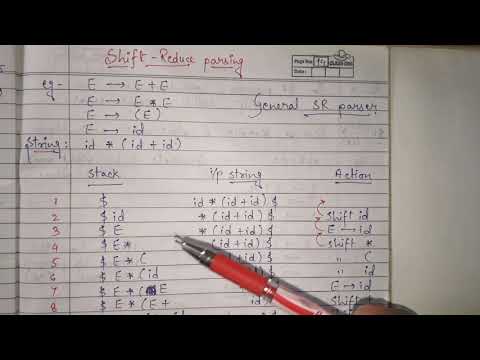 Shift-Reduce parsing
Page No. 14
Date:
eg- E → E + E
E → E * E
General SR parser
E → (E)
E → id
String: id * (id + id)
Stack i/p string Action
1 $ id * (id + id) $
2 $ id * (id + id) $ Shift id
3 $ E * (id + id) $ E → id
4 $ E * (id + id) $ Shift *
5 $ E * ( id + id) $ " (
6 $ E * (id " id
7 $ E * (E E → id
8 $ E * (E + id Shift +